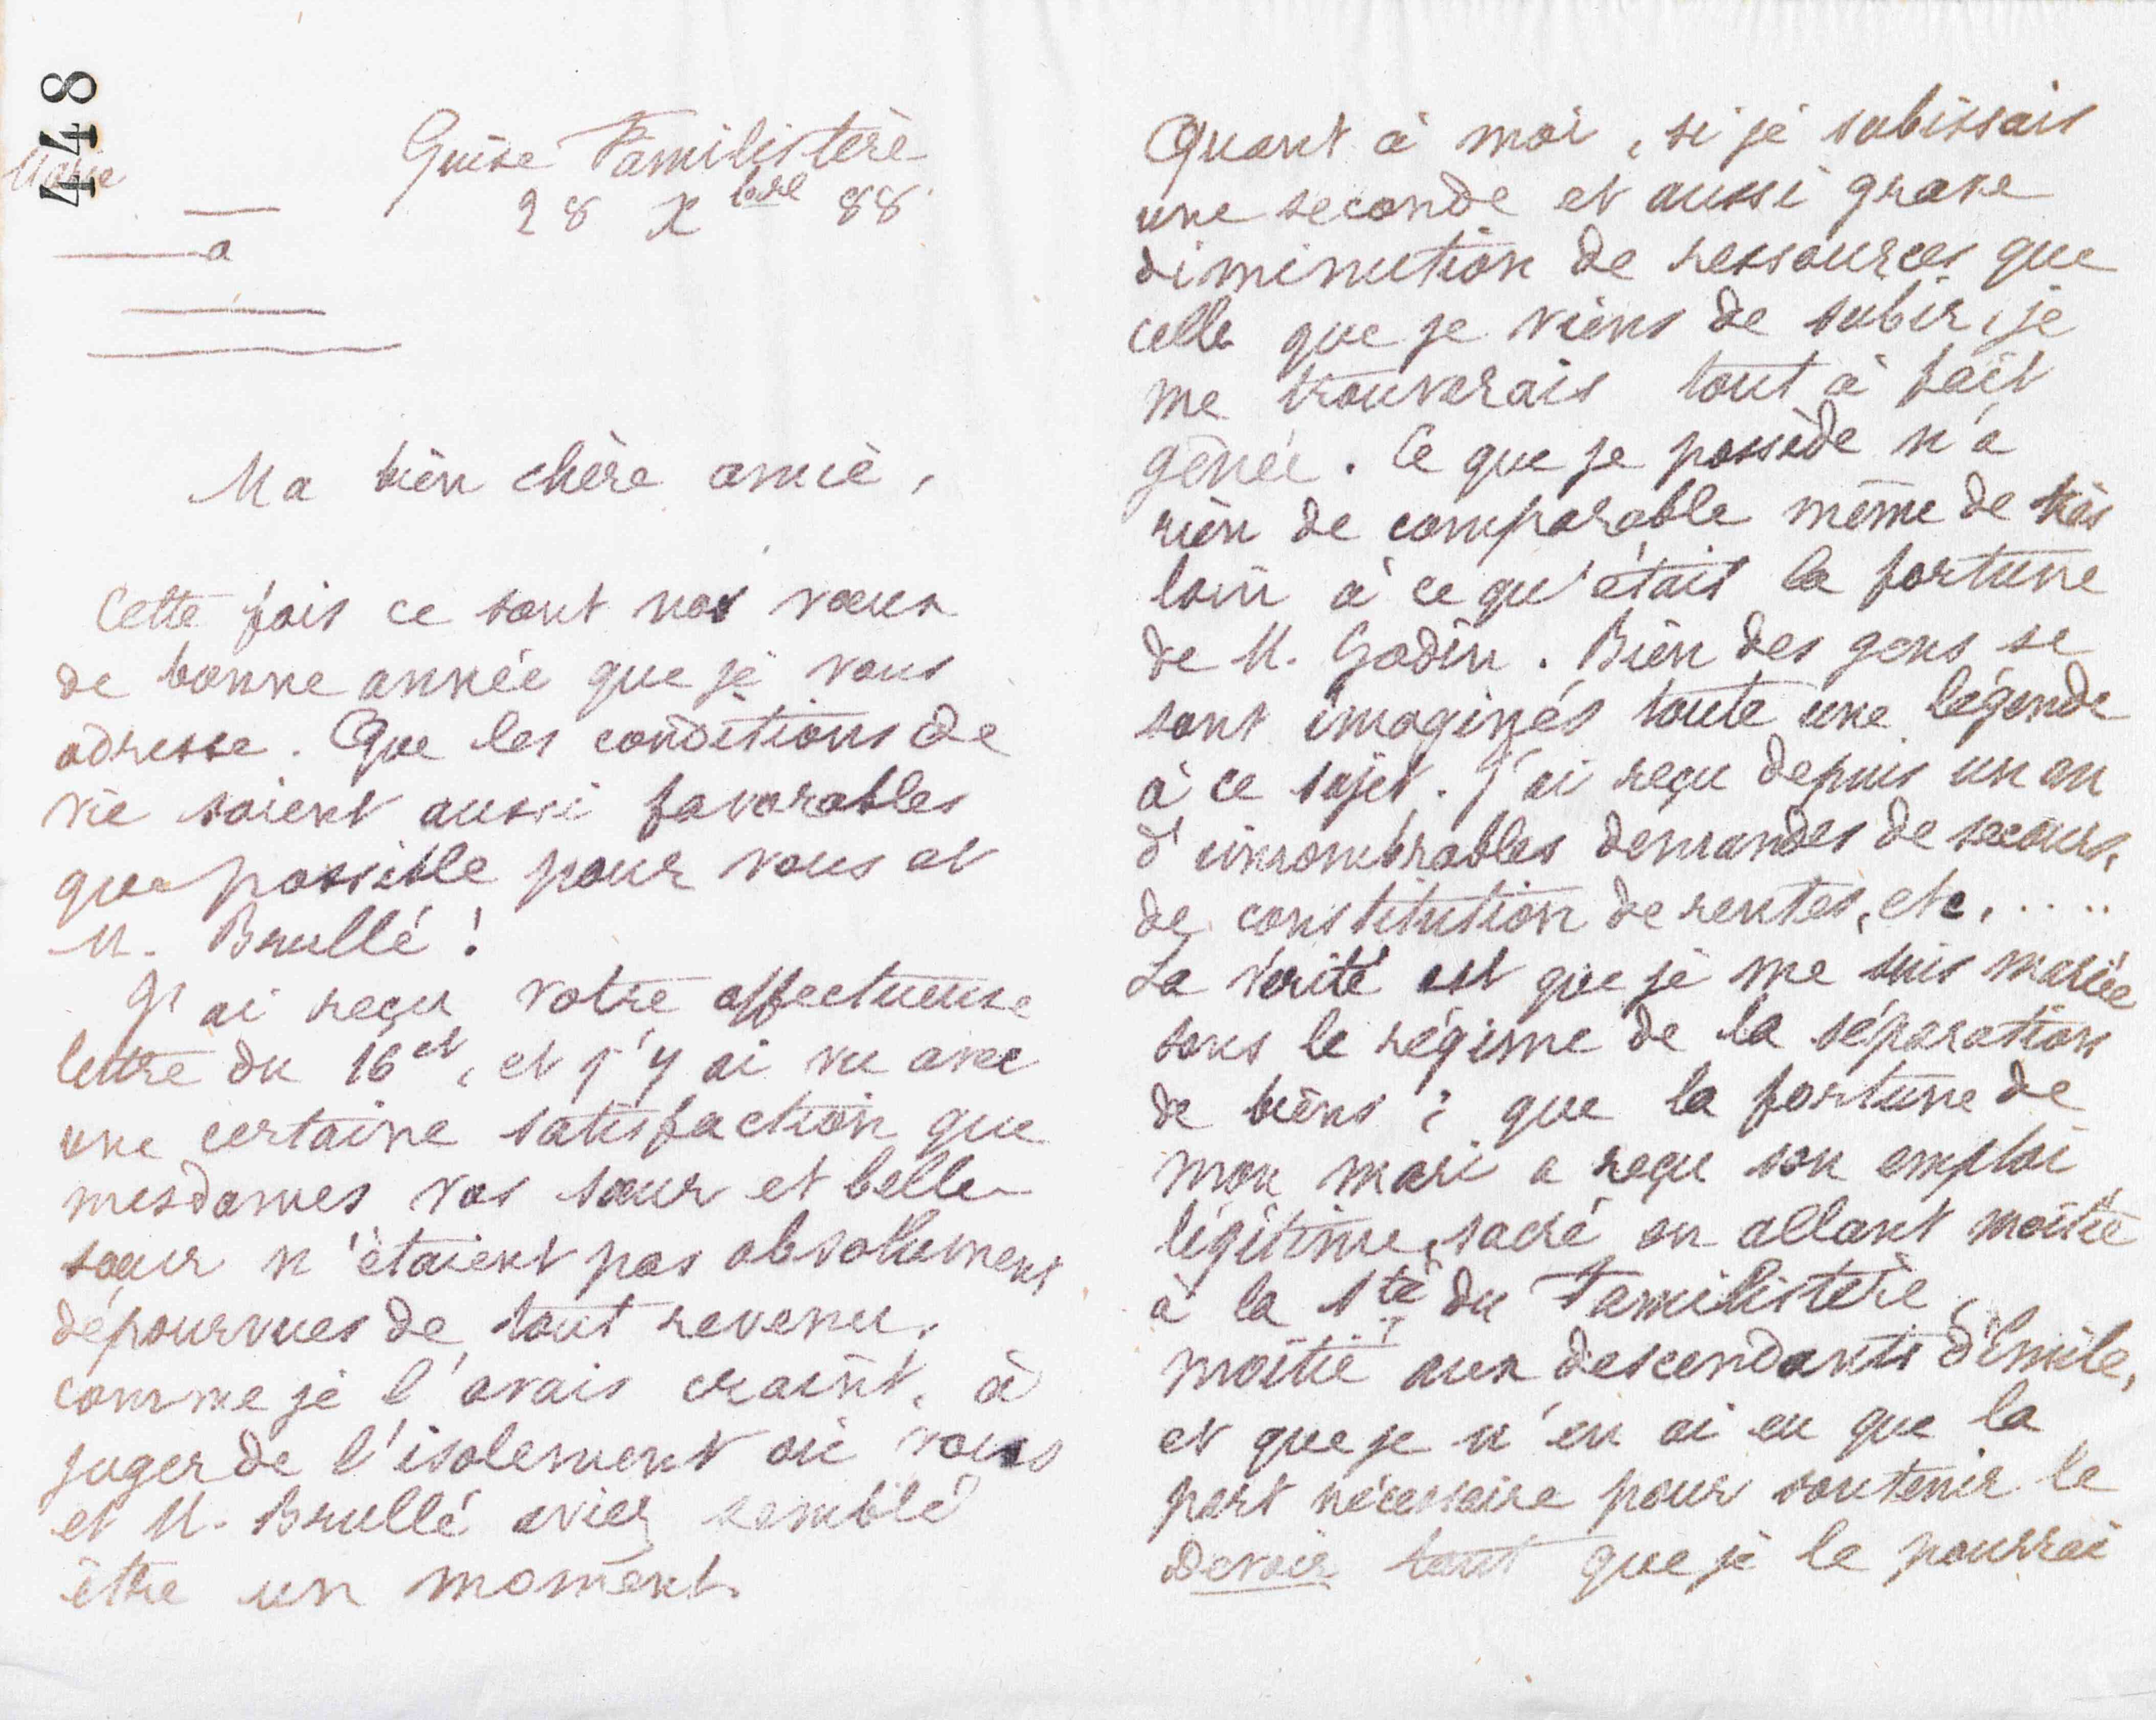 448
Marie
Guise Familistère
28 Xbre 88
a
Ma bien chère amie,
Cette fois ce sont nos vœux
de bonne année que je vous
adresse. Que les conditions de
vie soient aussi favorables
que possible pour vous et
M. Brullé !
J'ai reçu votre affectueuse
lettre du 16 ct, et j'y ai vu avec
une certaine satisfaction que
mesdames vos sœur et belle-
sœur n'étaient pas absolument
dépourvues de tout revenu,
comme je l'avais craint, à
juger de l'isolement où vous
et M. Brullé aviez semblé
être un moment.
Quant à moi, si je subissais
une seconde et aussi grave
diminution de ressources que
celle que je viens de subir, je
me trouverais tout à fait
gênée. Ce que je possède n'a
rien de comparable même de très
loin à ce qu'était la fortune
de M. Godin. Bien des gens se
sont imaginés toute une légende
à ce sujet. J'ai reçu depuis un an
d'innombrables demandes de secours,
de constitution de rentes, etc, .....
La vérité est que je me suis mariée
sous le régime de la séparation
de biens ; que la fortune de
mon mari a reçu son emploi
légitime, sacré en allant moitié
à la Sté du Familistère,
moitié aux descendants d'Emile,
et que je n'en ai eu que la
part nécessaire pour soutenir le
devoir tant que je le pourrai